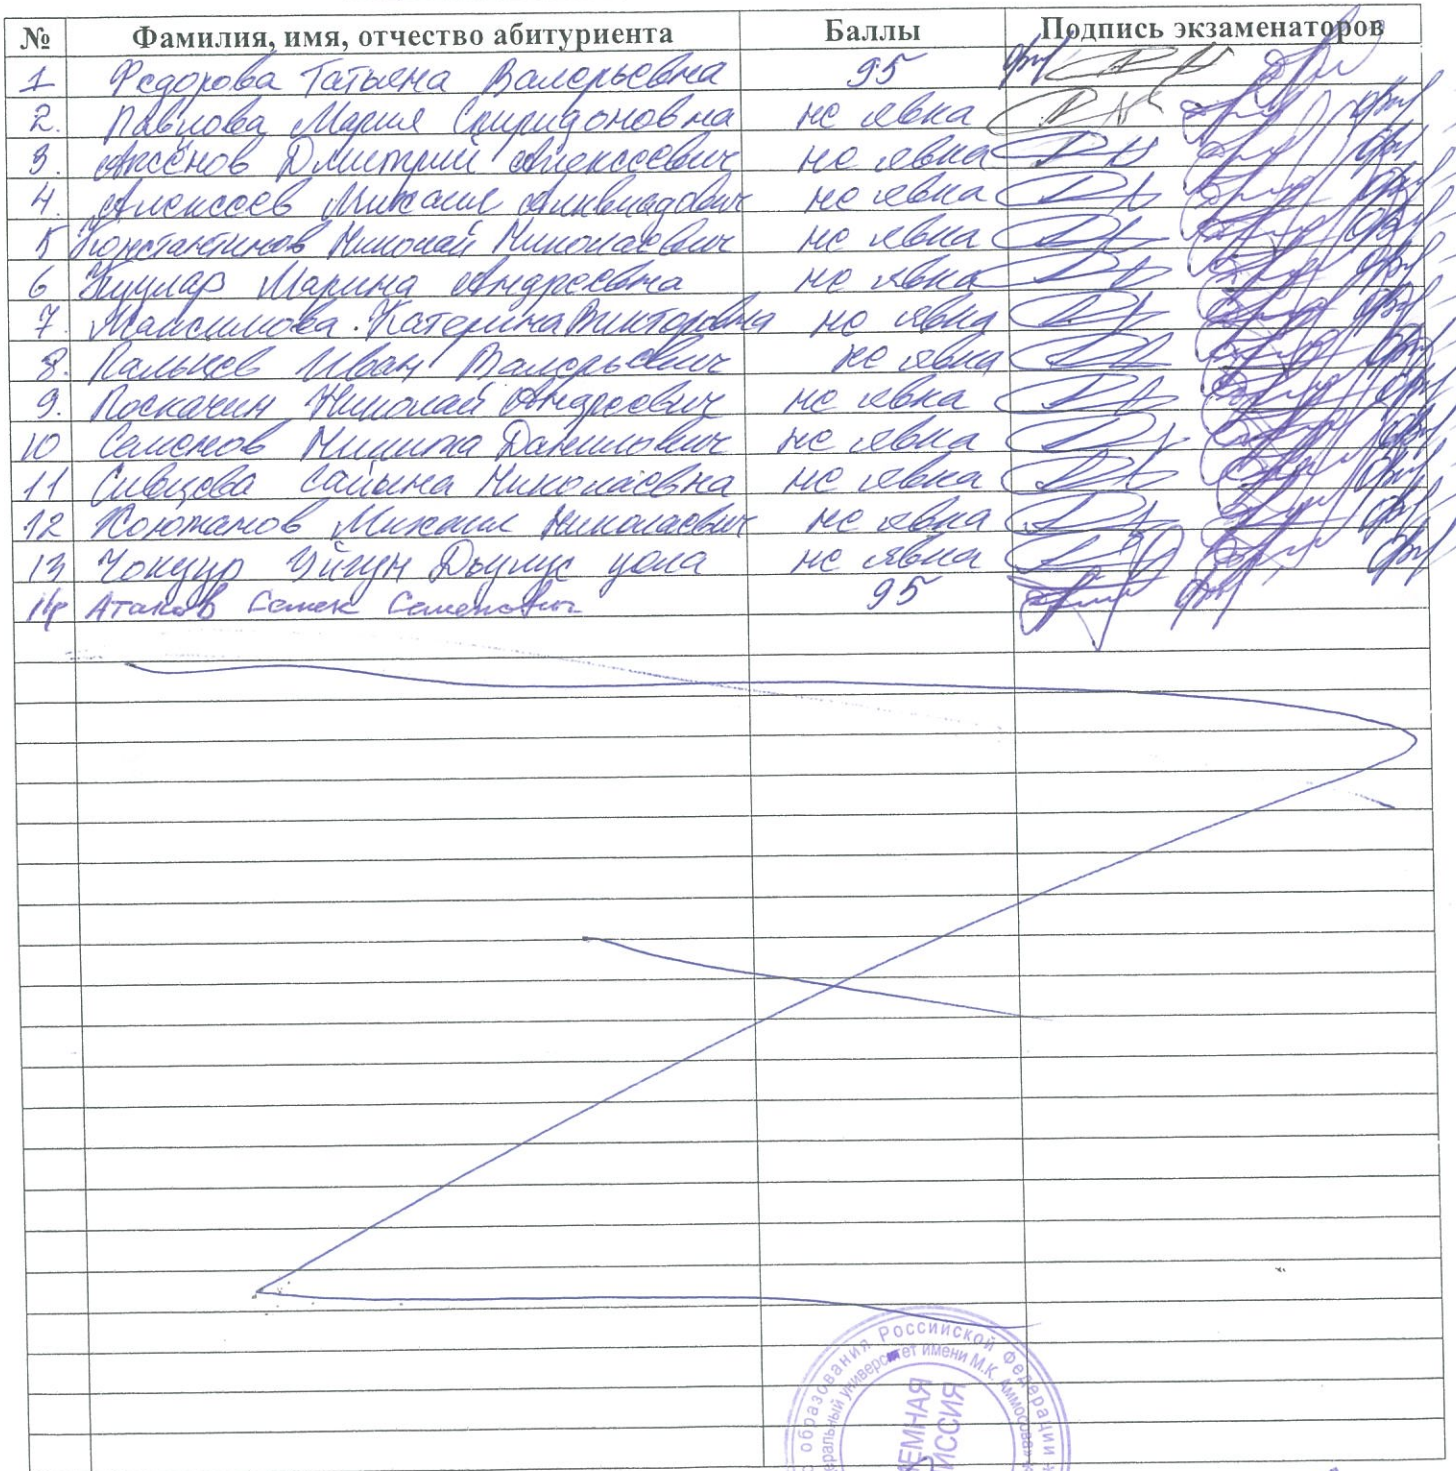 № Фамилия, имя, отчество абитуриента Баллы Подпись экзаменаторов
1 Федорова Татьяна Валерьевна 95
2. Павлова Мария Спиридоновна не явка
3. Аксёнов Дмитрий Алексеевич не явка
4. Алексеев Михаил Алквиадович не явка
5 Константинов Николай Николаевич не явка
6 Куулар Марина Андреевна не явка
7. Максимова Катерина Викторовна не явка
8. Пальцев Иван Валерьевич не явка
9. Поскачин Николай Андреевич не явка
10 Семенов Данилович не явка
11 Сивцева Сайына Николаевна не явка
12 Хоютанов Михаил Николаевич не явка
13 Чокуур Уйгун Дьулус уола не явка
14 Атаков Семен Семенович 95
образования Российской Федерации
университет имени М.К. Аммосова»
ЕМНАЯ
ИССИЯ